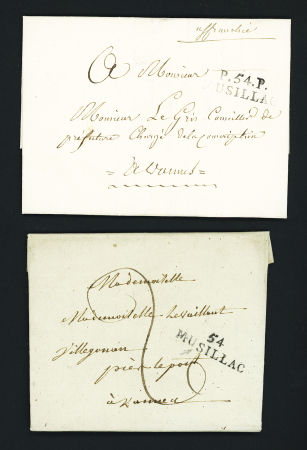 affranchie
A Monsieur
P.54.P.
MUSILLAC
Monsieur Le Gris Conseiller de
préfecture Chargé de la conscription
= A Vannes =
Mademoiselle
Mademoiselle Levaillant
54
MUSILLAC
Villegonan
près le port
à Vannes